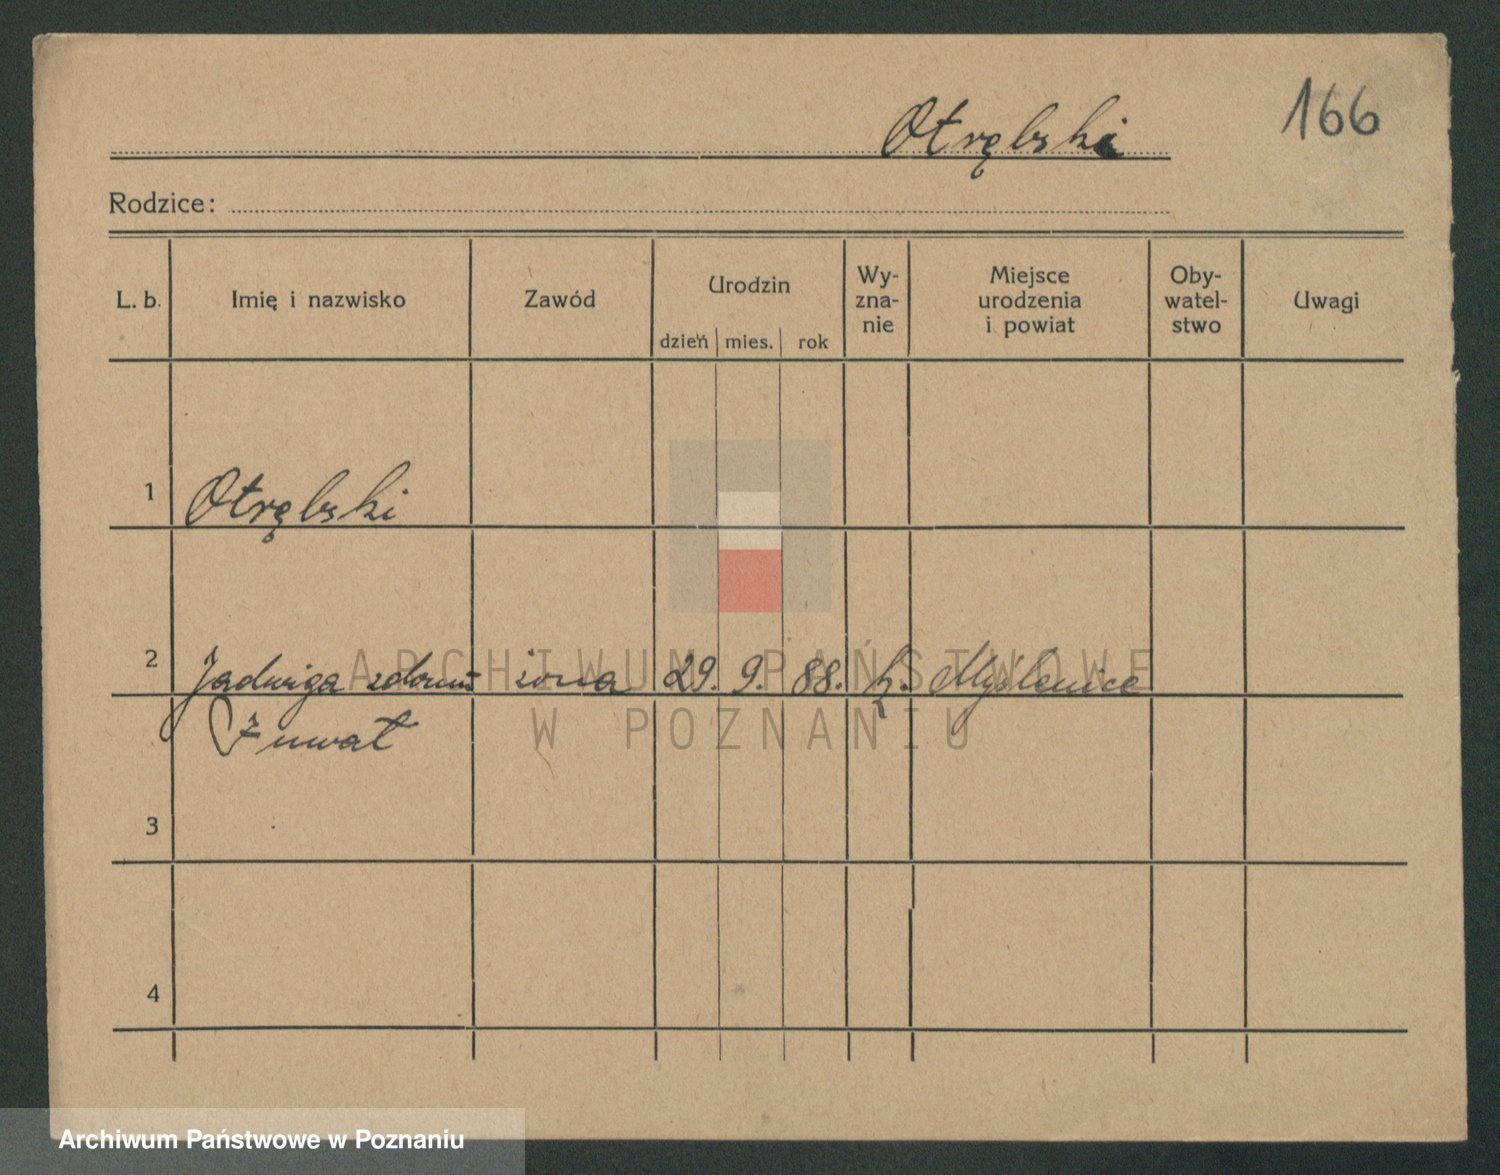 166
Otrębski
Rodzice:
L. b. Imię i nazwisko Zawód Urodzin dzień mies. rok Wy-zna-nie Miejsce urodzenia i powiat Oby-watel-stwo Uwagi
1 Otrębski
2 Jadwiga zdomu żona 29. 9. 88. k. Myślenice
3
4
ARCHIWUM PAŃSTWOWE
W POZNANIU
Archiwum Państwowe w Poznaniu